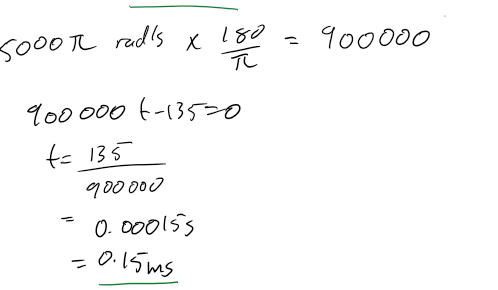 5000π rad/s × 180/π = 900000
900 000 t - 135 = 0
t = 135/900000
= 0.00015s
= 0.15ms